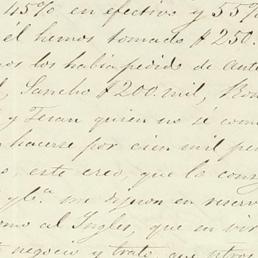 45% en efectivo y 55%
él hemos tomado $ 250.
os los había pedido de ante
l, Sancho $ 200. mil, Rom
y Juan quien no sé com
hacerse por cien mil pe
o, este creo, que la cons
gla. me dijeron en reserv
omo al Ingles, que en vir
negocio y trato que otros